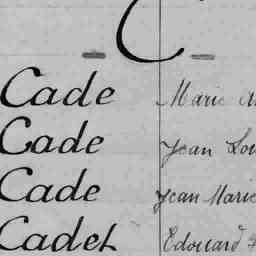 C
Cade Marie
Cade Jean Lou
Cade Jean Marie
Cadet Edouard